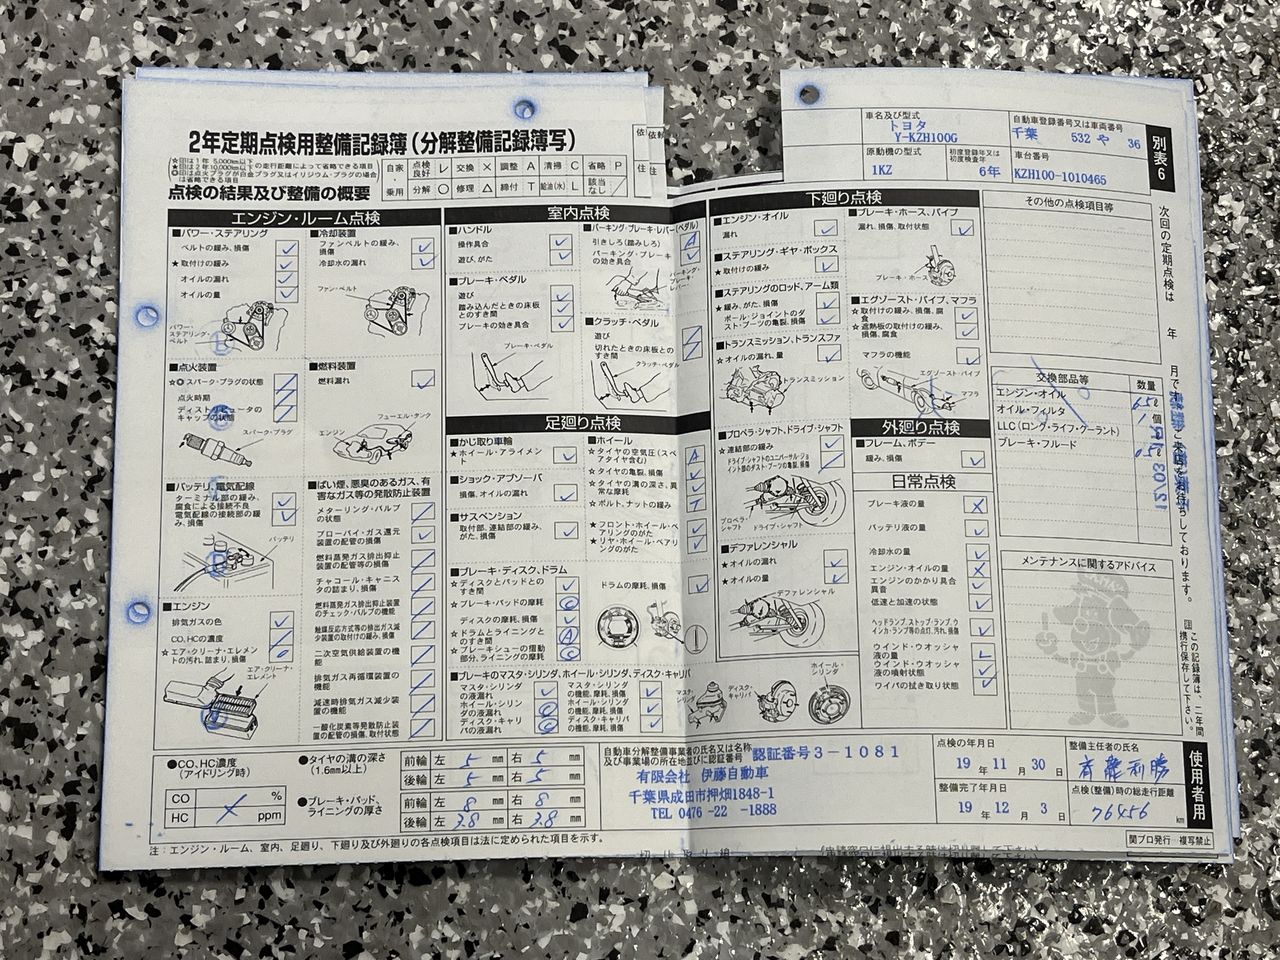 2年定期点検用整備記録簿(分解整備記録簿写)
☆印は1年 5,000km以下
★印は2年10,000km以下の走行距離によって省略できる項目
◎印は点火プラグが白金プラグ又はイリジウム・プラグの場合は省略できる項目
自家・乗用
点検良好 レ 交換 × 調整 A 清掃 C 省略 P
分解 ○ 修理 △ 締付 T 給油(水) L 該当なし /
点検の結果及び整備の概要
車名及び型式
トヨタ
Y-KZH100G
自動車登録番号又は車両番号
千葉 532 や 36
原動機の型式
1KZ
初度登録年又は初度検査年
6年
車台番号
KZH100-1010465
別表6
エンジン・ルーム点検
■パワー・ステアリング
ベルトの緩み、損傷
★取付けの緩み
オイルの漏れ
オイルの量
パワー・ステアリング・ベルト
■冷却装置
ファンベルトの緩み、損傷
冷却水の漏れ
ファン・ベルト
■点火装置
☆◎スパーク・プラグの状態
点火時期
ディストリビュータのキャップの状態
スパーク・プラグ
■燃料装置
燃料漏れ
フューエル・タンク
エンジン
■バッテリ、電気配線
ターミナル部の緩み、腐食による接続不良
電気配線の接続部の緩み、損傷
バッテリ
■エンジン
排気ガスの色
CO、HCの濃度
☆エア・クリーナ・エレメントの汚れ、詰まり、損傷
エア・クリーナ・エレメント
■ばい煙、悪臭のあるガス、有害なガス等の発散防止装置
メターリング・バルブの状態
ブローバイ・ガス還元装置の配管の損傷
燃料蒸発ガス排出抑止装置の配管等の損傷
チャコール・キャニスタの詰まり、損傷
燃料蒸発ガス排出抑止装置のチェック・バルブの機能
触媒反応方式等の排出ガス減少装置の取付けの緩み、損傷
二次空気供給装置の機能
排気ガス再循環装置の機能
減速時排気ガス減少装置の機能
一酸化炭素等発散防止装置の配管の損傷、取付状態
室内点検
■ハンドル
操作具合
遊び、がた
■ブレーキ・ペダル
遊び
踏み込んだときの床板とのすき間
ブレーキの効き具合
ブレーキ・ペダル
■パーキング・ブレーキ・レバー(ペダル)
引きしろ(踏みしろ)
パーキング・ブレーキの効き具合
■クラッチ・ペダル
遊び
切れたときの床板とのすき間
クラッチ・ペダル
足廻り点検
■かじ取り車輪
★ホイール・アライメント
■ショック・アブソーバ
損傷、オイルの漏れ
■サスペンション
取付部、連結部の緩み、がた、損傷
■ホイール
☆タイヤの空気圧(スペアタイヤ含む)
☆タイヤの亀裂、損傷
☆タイヤの溝の深さ、異常な摩耗
☆ボルト、ナットの緩み
★フロント・ホイール・ベアリングのがた
★リヤ・ホイール・ベアリングのがた
■ブレーキ・ディスク、ドラム
☆ディスクとパッドとのすき間
☆ブレーキ・パッドの摩耗
ディスクの摩耗、損傷
☆ドラムとライニングとのすき間
☆ブレーキシューの摺動部分、ライニングの摩耗
ドラムの摩耗、損傷
■ブレーキのマスタ・シリンダ、ホイール・シリンダ、ディスク・キャリパ
マスタ・シリンダの液漏れ
ホイール・シリンダの液漏れ
ディスク・キャリパの液漏れ
マスタ・シリンダの機能、摩耗、損傷
ホイール・シリンダの機能、摩耗、損傷
ディスク・キャリパの機能、摩耗、損傷
下廻り点検
■エンジン・オイル
漏れ
■ステアリング・ギヤ・ボックス
★取付けの緩み
■ステアリングのロッド、アーム類
★緩み、がた、損傷
ボール・ジョイントのダスト・ブーツの亀裂、損傷
■トランスミッション、トランスファ
☆オイルの漏れ、量
トランスミッション
■プロペラ・シャフト、ドライブ・シャフト
★連結部の緩み
ドライブ・シャフトのユニバーサル・ジョイント部のダスト・ブーツの亀裂、損傷
プロペラ・シャフト
ドライブ・シャフト
■デファレンシャル
★オイルの漏れ
★オイルの量
デファレンシャル
ディスク・キャリパ
ホイール・シリンダ
■ブレーキ・ホース、パイプ
漏れ、損傷、取付状態
ブレーキ・ホース
■エグゾースト・パイプ、マフラ
★取付けの緩み、損傷、腐食
★遮熱板の取付けの緩み、損傷、腐食
マフラの機能
エグゾースト・パイプ
マフラ
外廻り点検
■フレーム、ボデー
緩み、損傷
日常点検
ブレーキ液の量
バッテリ液の量
冷却水の量
エンジン・オイルの量
エンジンのかかり具合 異音
低速と加速の状態
ヘッドランプ、ストップランプ、ウインカ・ランプ等の点灯、汚れ、損傷
ウインド・ウオッシャ液の量
ウインド・ウオッシャ液の噴射状態
ワイパの拭き取り状態
その他の点検項目等
交換部品等 数量
エンジン・オイル 6.5ℓ
オイル・フィルタ 1個
LLC(ロング・ライフ・クーラント)
ブレーキ・フルード 0.5ℓ
メンテナンスに関するアドバイス
次回の定期点検は 年 月です。ご来店をお待ちしております。
この記録簿は、二年間携行保存して下さい。
使用者用
●CO、HC濃度(アイドリング時)
CO %
HC ppm
●タイヤの溝の深さ(1.6mm以上)
前輪 左 5 mm 右 5 mm
後輪 左 5 mm 右 5 mm
●ブレーキ・パッド、ライニングの厚さ
前輪 左 8 mm 右 8 mm
後輪 左 3.8 mm 右 3.8 mm
自動車分解整備事業者の氏名又は名称及び事業場の所在地並びに認証番号
認証番号3-1081
有限会社 伊藤自動車
千葉県成田市押畑1848-1
TEL 0476-22-1888
点検の年月日
19年11月30日
整備完了年月日
19年12月3日
整備主任者の氏名
斉藤利勝
点検(整備)時の総走行距離
76456 km
注:エンジン・ルーム、室内、足廻り、下廻り及び外廻りの各点検項目は法に定められた項目を示す。
関ブロ発行 複写禁止